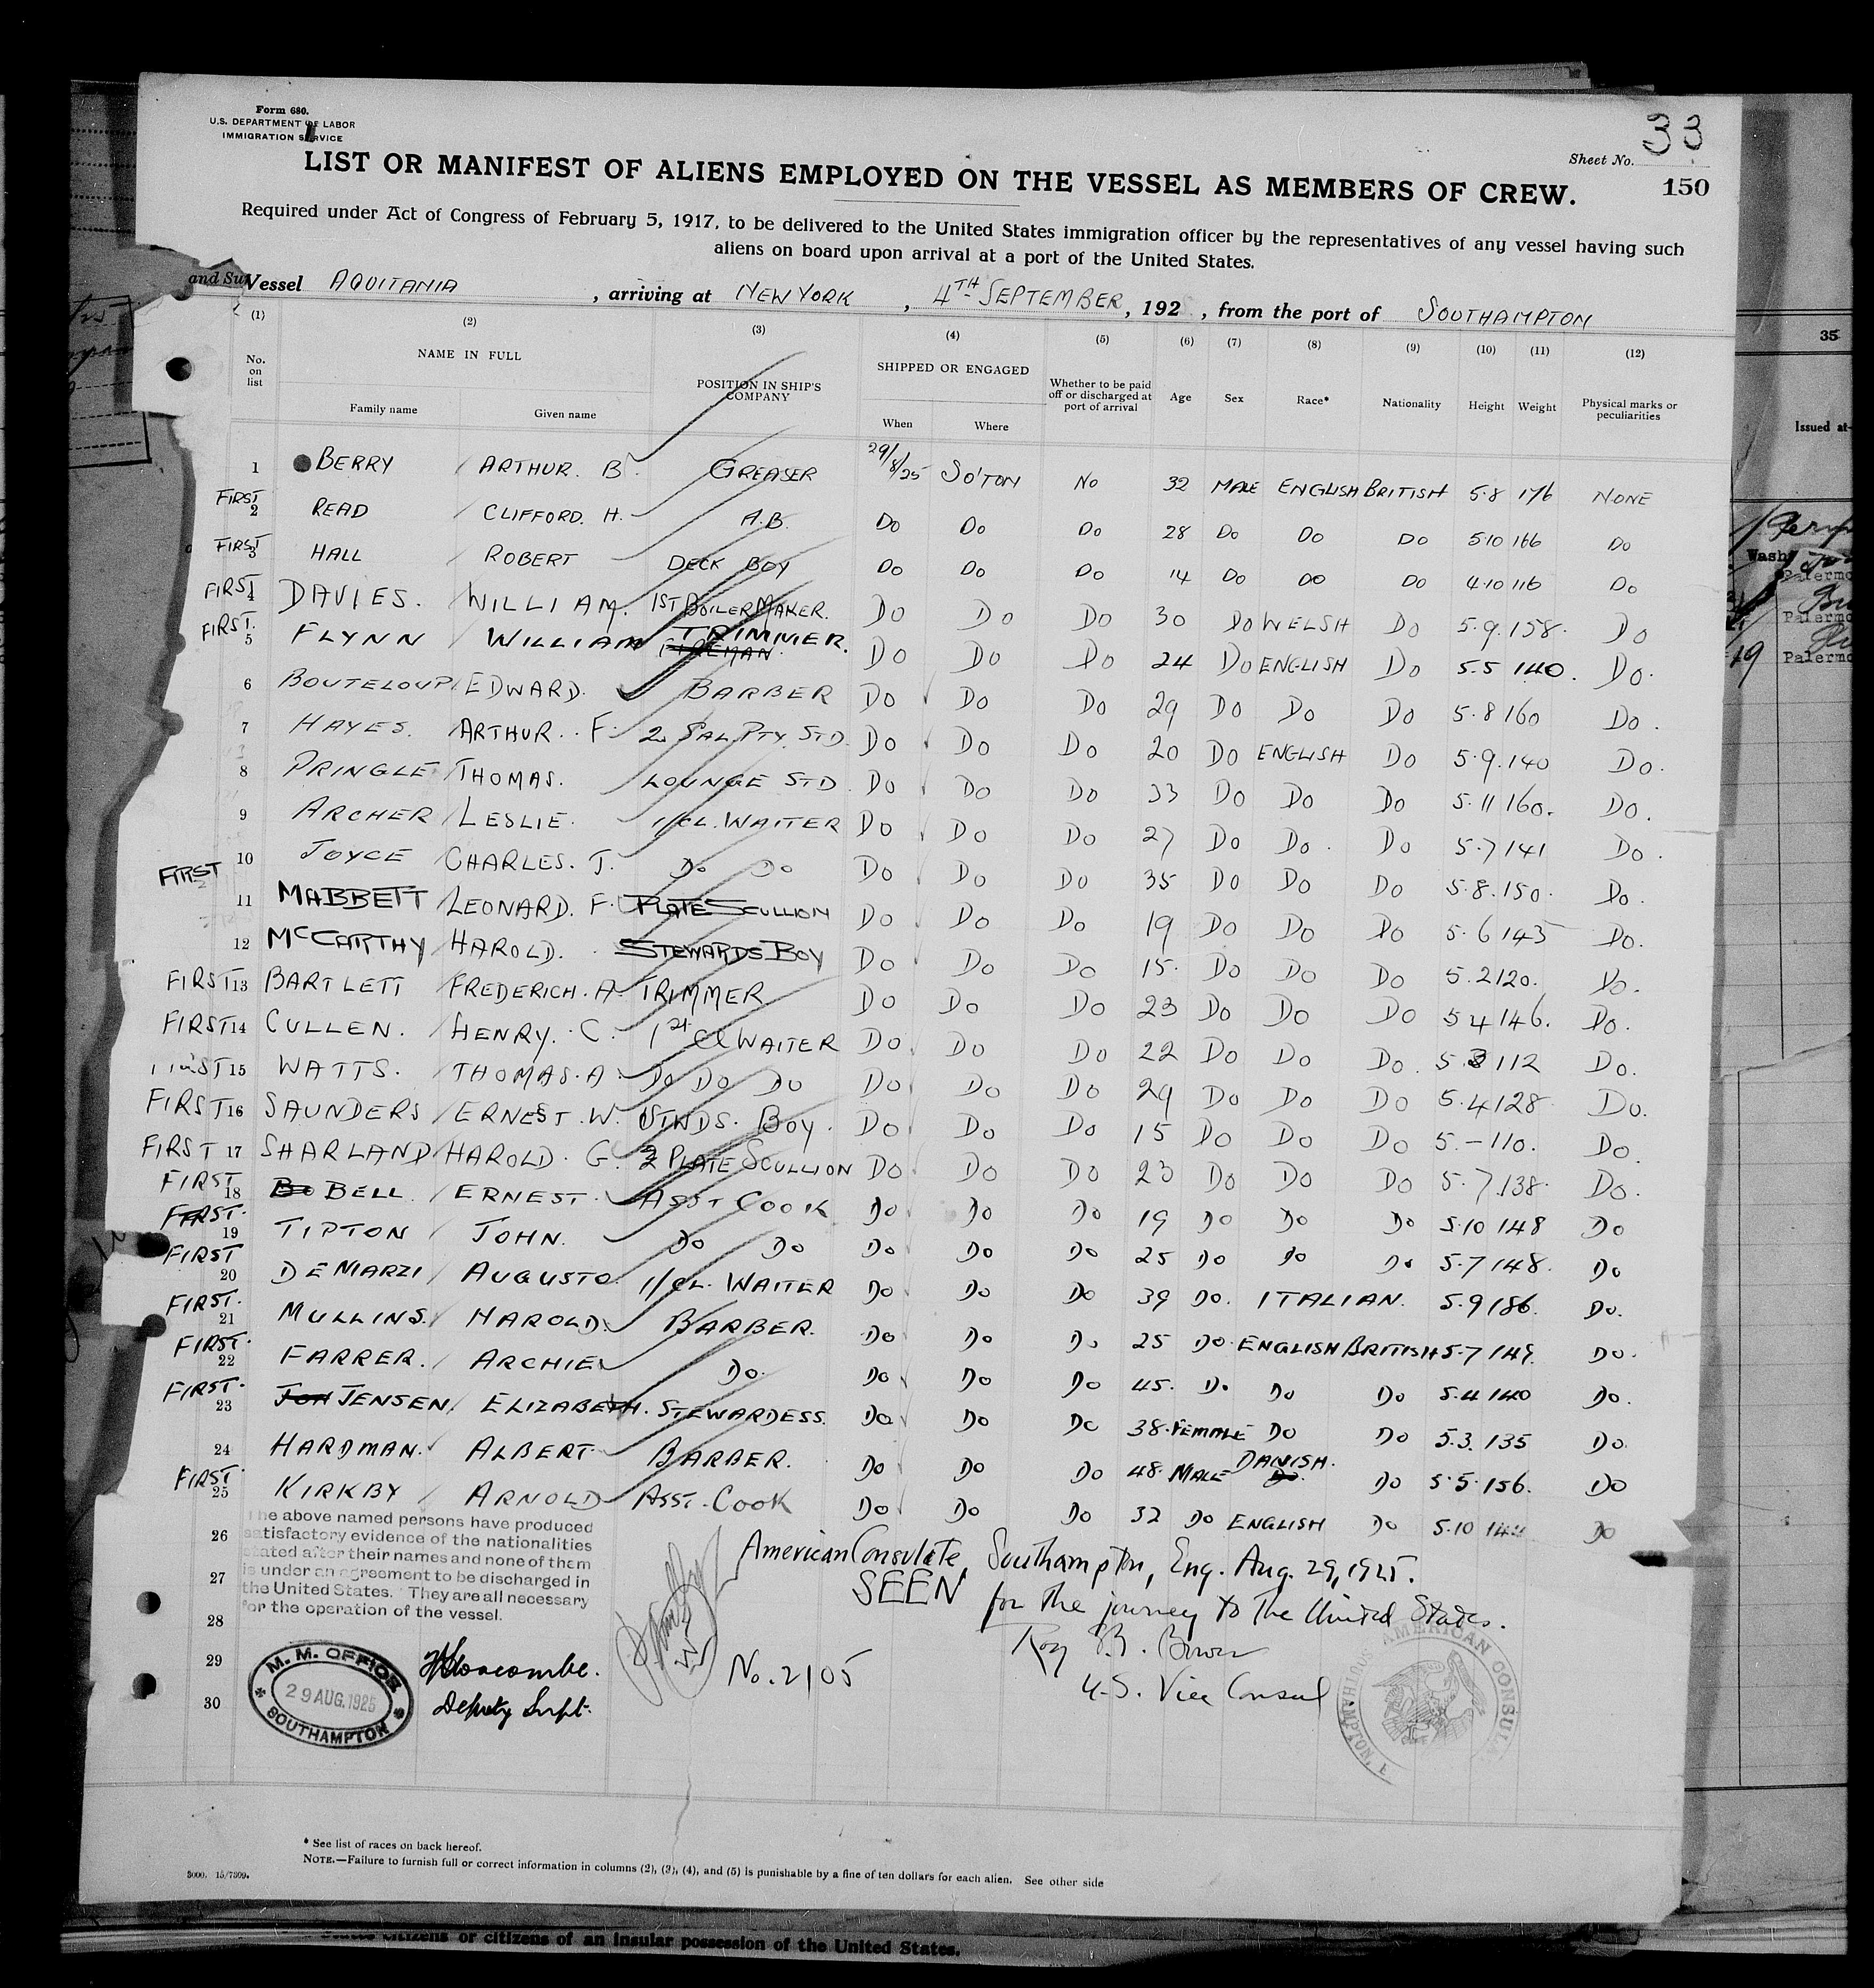 Form 680.
U.S. DEPARTMENT OF LABOR
IMMIGRATION SERVICE
Sheet No. 33
150
LIST OR MANIFEST OF ALIENS EMPLOYED ON THE VESSEL AS MEMBERS OF CREW.
Required under Act of Congress of February 5, 1917, to be delivered to the United States immigration officer by the representatives of any vessel having such
aliens on board upon arrival at a port of the United States.
and Su
Vessel AQUITANIA, arriving at NEW YORK, 4TH SEPTEMBER, 192 , from the port of SOUTHAMPTON
(1) (2) (3) (4) (5) (6) (7) (8) (9) (10) (11) (12)
No. on list NAME IN FULL POSITION IN SHIP'S COMPANY SHIPPED OR ENGAGED Whether to be paid off or discharged at port of arrival Age Sex Race* Nationality Height Weight Physical marks or peculiarities
Family name Given name When Where
1 BERRY ARTHUR. B. GREASER 29/8/25 SO'TON NO 32 MALE ENGLISH BRITISH 5.8 176 NONE
FIRST 2 READ CLIFFORD. H. A.B. DO DO DO 28 DO DO DO 5.10 166 DO
FIRST 3 HALL ROBERT DECK BOY DO DO DO 14 DO DO DO 4.10 116 DO
FIRST 4 DAVIES. WILLIAM. 1ST BOILERMAKER. DO DO DO 30 DO WELSH DO 5.9. 158. DO
FIRST. 5 FLYNN WILLIAM TRIMMER. FIREMAN DO DO DO 24 DO ENGLISH DO 5.5 140. DO.
6 BOUTELOUP EDWARD. BARBER DO DO DO 29 DO DO DO 5.8 160 DO.
7 HAYES. ARTHUR. F. 2 SAL PTY. STD. DO DO DO 20 DO ENGLISH DO 5.9. 140 DO.
8 PRINGLE THOMAS. LOUNGE STD. DO DO DO 33 DO DO DO 5.11 160. DO.
9 ARCHER LESLIE. 1/CL. WAITER DO DO DO 27 DO DO. DO 5.7 141 DO.
10 JOYCE CHARLES. J. DO DO DO DO DO 35 DO DO DO 5.8. 150. DO.
FIRST 11 MABBETT LEONARD. F. PLATE SCULLION DO DO DO 19 DO DO DO 5.6 145 DO.
12 McCARTHY HAROLD. STEWARDS BOY DO DO DO 15. DO DO DO 5.2 120. DO.
FIRST 13 BARTLETT FREDERICH. A. TRIMMER DO DO DO 23 DO DO DO 5 4 146. DO.
FIRST 14 CULLEN. HENRY. C. 1st Cl WAITER DO DO DO 22 DO DO DO. 5 3 112 DO.
FIRST 15 WATTS. THOMAS. A. DO DO DO DO DO DO 29 DO DO DO 5.4 128 DO.
FIRST 16 SAUNDERS ERNEST. W. STWDS. BOY. DO DO DO 15 DO DO DO 5.- 110. DO.
FIRST 17 SHARLAND HAROLD. G. 2 PLATE SCULLION DO DO DO 23 DO DO DO 5.7. 138. DO.
FIRST 18 BELL. ERNEST. ASST COOK DO DO DO 19 DO DO DO 5.10 148 DO
FIRST. 19 TIPTON JOHN. DO DO DO DO DO 25 DO DO DO 5.7 148. DO
FIRST 20 DEMARZI AUGUSTO. 1/CL. WAITER DO DO DO 39 DO. ITALIAN. 5.9 186. DO.
FIRST. 21 MULLINS. HAROLD. BARBER. DO DO DO 25 DO. ENGLISH BRITISH 5.7 149. DO.
FIRST. 22 FARRER. ARCHIE DO. DO DO DO 45. DO DO DO 5.4 140 DO.
FIRST. 23 JENSEN ELIZABETH. STEWARDESS. DO DO DO 38. FEMALE DO DO 5.3. 135 DO.
24 HARDMAN. ALBERT. BARBER. DO DO DO 48. MALE DANISH. DO. DO 5.5. 156. DO
FIRST. 25 KIRKBY ARNOLD ASST. COOK DO DO DO 32 DO ENGLISH DO 5.10 DO
26
27
28
29
30
The above named persons have produced
satisfactory evidence of the nationalities
stated after their names and none of them
is under an agreement to be discharged in
the United States. They are all necessary
for the operation of the vessel.
American Consulate, Southampton, Eng. Aug. 29, 1925.
SEEN for the journey to the United States.
Roy B. Bower
U.S. Vice Consul
No. 2105
M. M. OFFICE
29 AUG. 1925
SOUTHAMPTON
Deputy Supt.
AMERICAN CONSULA
SOUTHAMPTON, E
* See list of races on back hereof.
NOTE.—Failure to furnish full or correct information in columns (2), (3), (4), and (5) is punishable by a fine of ten dollars for each alien. See other side
3000. 15/7309.
35
Issued at
Wash
Palermo
Palermo
19 Palermo
States citizens or citizens of an insular possession of the United States.